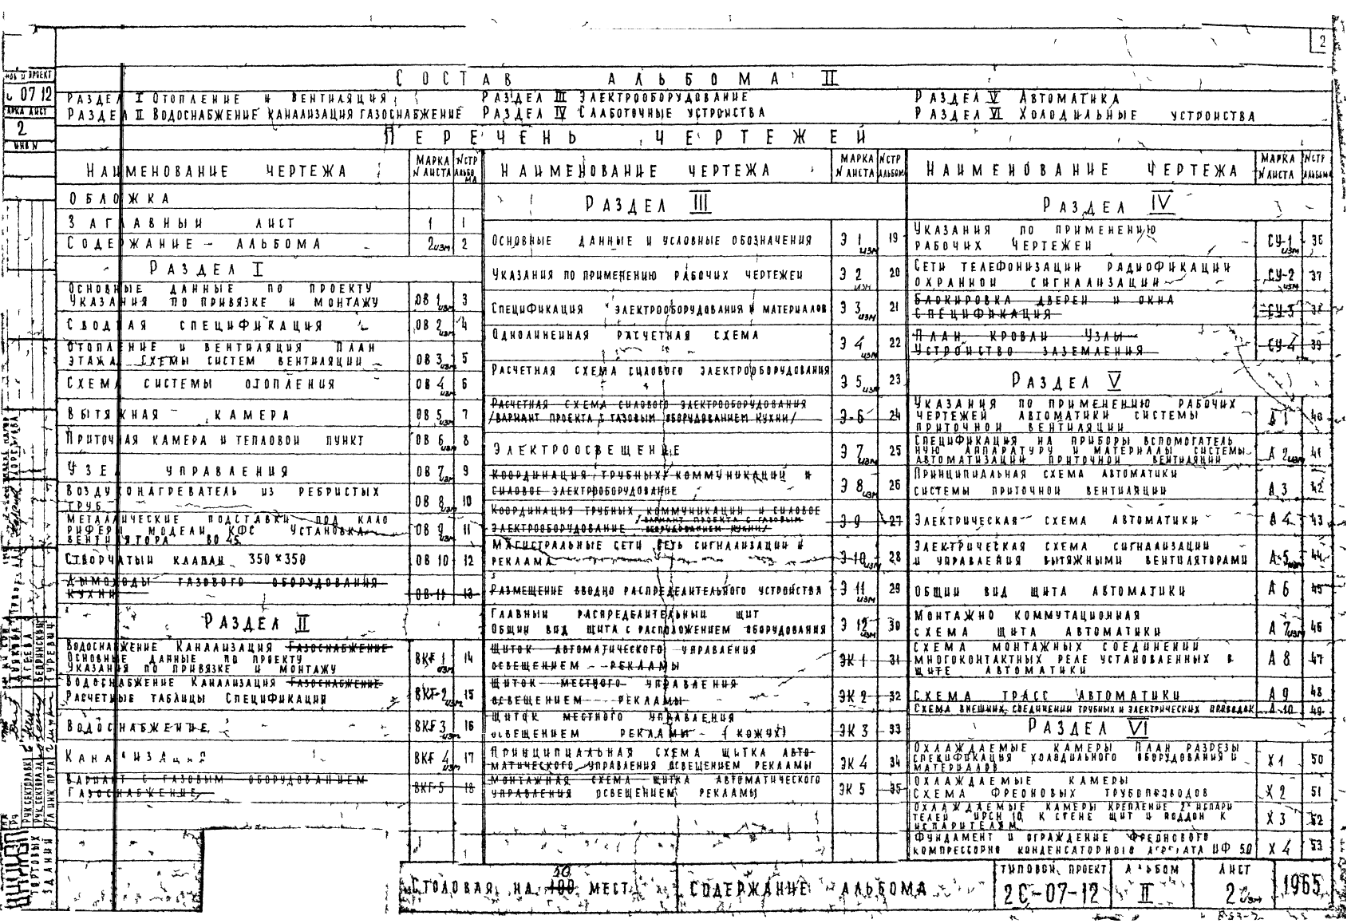 2
07 12
2
СОСТАВ АЛЬБОМА II
РАЗДЕЛ I ОТОПЛЕНИЕ И ВЕНТИЛЯЦИЯ
РАЗДЕЛ II ВОДОСНАБЖЕНИЕ КАНАЛИЗАЦИЯ ГАЗОСНАБЖЕНИЕ
РАЗДЕЛ III ЭЛЕКТРООБОРУДОВАНИЕ
РАЗДЕЛ IV СЛАБОТОЧНЫЕ УСТРОЙСТВА
РАЗДЕЛ V АВТОМАТИКА
РАЗДЕЛ VI ХОЛОДИЛЬНЫЕ УСТРОЙСТВА
ПЕРЕЧЕНЬ ЧЕРТЕЖЕЙ
НАИМЕНОВАНИЕ ЧЕРТЕЖА МАРКА N ЛИСТА N СТР АЛЬБОМА
ОБЛОЖКА
ЗАГЛАВНЫЙ ЛИСТ 1 1
СОДЕРЖАНИЕ АЛЬБОМА 2 ИЗМ 2
РАЗДЕЛ I
ОСНОВНЫЕ ДАННЫЕ ПО ПРОЕКТУ
УКАЗАНИЯ ПО ПРИВЯЗКЕ И МОНТАЖУ ОВ 1 ИЗМ 3
СВОДНАЯ СПЕЦИФИКАЦИЯ ОВ 2 ИЗМ 4
ОТОПЛЕНИЕ И ВЕНТИЛЯЦИЯ ПЛАН
ЭТАЖА СХЕМЫ СИСТЕМ ВЕНТИЛЯЦИИ ОВ 3 ИЗМ 5
СХЕМА СИСТЕМЫ ОТОПЛЕНИЯ ОВ 4 ИЗМ 6
ВЫТЯЖНАЯ КАМЕРА ОВ 5 ИЗМ 7
ПРИТОЧНАЯ КАМЕРА И ТЕПЛОВОЙ ПУНКТ ОВ 6 ИЗМ 8
УЗЕЛ УПРАВЛЕНИЯ ОВ 7 ИЗМ 9
ВОЗДУХОНАГРЕВАТЕЛЬ ИЗ РЕБРИСТЫХ
ТРУБ ОВ 8 10
МЕТАЛЛИЧЕСКИЕ ПОДСТАВКИ ПОД КАЛО
РИФЕРЫ МОДЕЛИ КФС УСТАНОВКА
ВЕНТИЛЯТОРА ОВ 9 11
СТВОРЧАТЫЙ КЛАПАН 350×350 ОВ 10 12
ДЫМОХОДЫ ГАЗОВОГО ОБОРУДОВАНИЯ
КУХНИ ОВ 11 13
РАЗДЕЛ II
ВОДОСНАБЖЕНИЕ КАНАЛИЗАЦИЯ ГАЗОСНАБЖЕНИЕ
ОСНОВНЫЕ ДАННЫЕ ПО ПРОЕКТУ
УКАЗАНИЯ ПО ПРИВЯЗКЕ И МОНТАЖУ ВКГ 1 ИЗМ 14
ВОДОСНАБЖЕНИЕ КАНАЛИЗАЦИЯ ГАЗОСНАБЖЕНИЕ
РАСЧЕТНЫЕ ТАБЛИЦЫ СПЕЦИФИКАЦИЯ ВКГ-2 ИЗМ 15
ВОДОСНАБЖЕНИЕ ВКГ 3 ИЗМ 16
КАНАЛИЗАЦИЯ ВКГ 4 ИЗМ 17
ВАРИАНТ С ГАЗОВЫМ ОБОРУДОВАНИЕМ
ГАЗОСНАБЖЕНИЕ ВКГ-5 18
НАИМЕНОВАНИЕ ЧЕРТЕЖА МАРКА N ЛИСТА N СТР АЛЬБОМ
РАЗДЕЛ III
ОСНОВНЫЕ ДАННЫЕ И УСЛОВНЫЕ ОБОЗНАЧЕНИЯ Э 1 ИЗМ 19
УКАЗАНИЯ ПО ПРИМЕНЕНИЮ РАБОЧИХ ЧЕРТЕЖЕЙ Э 2 ИЗМ 20
СПЕЦИФИКАЦИЯ ЭЛЕКТРООБОРУДОВАНИЯ И МАТЕРИАЛОВ Э 3 ИЗМ 21
ОДНОЛИНЕЙНАЯ РАСЧЕТНАЯ СХЕМА Э 4 ИЗМ 22
РАСЧЕТНАЯ СХЕМА СИЛОВОГО ЭЛЕКТРООБОРУДОВАНИЯ Э 5 ИЗМ 23
РАСЧЕТНАЯ СХЕМА СИЛОВОГО ЭЛЕКТРООБОРУДОВАНИЯ
/ВАРИАНТ ПРОЕКТА С ГАЗОВЫМ ОБОРУДОВАНИЕМ КУХНИ/ Э-6 24
ЭЛЕКТРООСВЕЩЕНИЕ Э 7 ИЗМ 25
КООРДИНАЦИЯ ТРУБНЫХ КОММУНИКАЦИЙ И
СИЛОВОЕ ЭЛЕКТРООБОРУДОВАНИЕ Э 8 ИЗМ 26
КООРДИНАЦИЯ ТРУБНЫХ КОММУНИКАЦИЙ И СИЛОВОЕ
ЭЛЕКТРООБОРУДОВАНИЕ /ВАРИАНТ ПРОЕКТА С ГАЗОВЫМ ОБОРУДОВАНИЕМ КУХНИ/ Э-9 27
МАГИСТРАЛЬНЫЕ СЕТИ СЕТЬ СИГНАЛИЗАЦИИ И
РЕКЛАМА Э-10 ИЗМ 28
РАЗМЕЩЕНИЕ ВВОДНО РАСПРЕДЕЛИТЕЛЬНОГО УСТРОЙСТВА Э 11 ИЗМ 29
ГЛАВНЫЙ РАСПРЕДЕЛИТЕЛЬНЫЙ ЩИТ
ОБЩИЙ ВИД ЩИТА С РАСПОЛОЖЕНИЕМ ОБОРУДОВАНИЯ Э 12 ИЗМ 30
ЩИТОК АВТОМАТИЧЕСКОГО УПРАВЛЕНИЯ
ОСВЕЩЕНИЕМ РЕКЛАМЫ ЭК 1 31
ЩИТОК МЕСТНОГО УПРАВЛЕНИЯ
ОСВЕЩЕНИЕМ РЕКЛАМЫ ЭК 2 32
ЩИТОК МЕСТНОГО УПРАВЛЕНИЯ
ОСВЕЩЕНИЕМ РЕКЛАМЫ (КОЖУХ) ЭК 3 33
ПРИНЦИПИАЛЬНАЯ СХЕМА ЩИТКА АВТО-
МАТИЧЕСКОГО УПРАВЛЕНИЯ ОСВЕЩЕНИЕМ РЕКЛАМЫ ЭК 4 34
МОНТАЖНАЯ СХЕМА ЩИТКА АВТОМАТИЧЕСКОГО
УПРАВЛЕНИЯ ОСВЕЩЕНИЕМ РЕКЛАМЫ ЭК 5 35
НАИМЕНОВАНИЕ ЧЕРТЕЖА МАРКА N ЛИСТА N СТР АЛЬБОМА
РАЗДЕЛ IV
УКАЗАНИЯ ПО ПРИМЕНЕНИЮ
РАБОЧИХ ЧЕРТЕЖЕЙ СУ-1 ИЗМ 36
СЕТИ ТЕЛЕФОНИЗАЦИИ РАДИОФИКАЦИИ
ОХРАННОЙ СИГНАЛИЗАЦИИ СУ-2 ИЗМ 37
БЛОКИРОВКА ДВЕРЕЙ И ОКНА
СПЕЦИФИКАЦИЯ СУ-3 38
ПЛАН КРОВЛИ УЗЛЫ
УСТРОЙСТВО ЗАЗЕМЛЕНИЯ СУ-4 39
РАЗДЕЛ V
УКАЗАНИЯ ПО ПРИМЕНЕНИЮ РАБОЧИХ
ЧЕРТЕЖЕЙ АВТОМАТИКИ СИСТЕМЫ
ПРИТОЧНОЙ ВЕНТИЛЯЦИИ А 1 40
СПЕЦИФИКАЦИЯ НА ПРИБОРЫ ВСПОМОГАТЕЛЬ
НУЮ АППАРАТУРУ И МАТЕРИАЛЫ СИСТЕМЫ
АВТОМАТИЗАЦИИ ПРИТОЧНОЙ ВЕНТИЛЯЦИИ А 2 ИЗМ 41
ПРИНЦИПИАЛЬНАЯ СХЕМА АВТОМАТИКИ
СИСТЕМЫ ПРИТОЧНОЙ ВЕНТИЛЯЦИИ А 3 42
ЭЛЕКТРИЧЕСКАЯ СХЕМА АВТОМАТИКИ А 4 43
ЭЛЕКТРИЧЕСКАЯ СХЕМА СИГНАЛИЗАЦИИ
И УПРАВЛЕНИЯ ВЫТЯЖНЫМИ ВЕНТИЛЯТОРАМИ А-5 ИЗМ 44
ОБЩИЙ ВИД ЩИТА АВТОМАТИКИ А 6 45
МОНТАЖНО КОММУТАЦИОННАЯ
СХЕМА ЩИТА АВТОМАТИКИ А 7 ИЗМ 46
СХЕМА МОНТАЖНЫХ СОЕДИНЕНИЙ
МНОГОКОНТАКТНЫХ РЕЛЕ УСТАНОВЛЕННЫХ В
ЩИТЕ АВТОМАТИКИ А 8 47
СХЕМА ТРАСС АВТОМАТИКИ А 9 48
СХЕМА ВНЕШНИХ СОЕДИНЕНИЙ ТРУБНЫХ И ЭЛЕКТРИЧЕСКИХ ПРОВОДОК А-10 49
РАЗДЕЛ VI
ОХЛАЖДАЕМЫЕ КАМЕРЫ ПЛАН РАЗРЕЗЫ
СПЕЦИФИКАЦИЯ ХОЛОДИЛЬНОГО ОБОРУДОВАНИЯ И
МАТЕРИАЛОВ Х 1 50
ОХЛАЖДАЕМЫЕ КАМЕРЫ
СХЕМА ФРЕОНОВЫХ ТРУБОПРОВОДОВ Х 2 51
ОХЛАЖДАЕМЫЕ КАМЕРЫ КРЕПЛЕНИЕ 2Х ИСПАРИ
ТЕЛЕЙ ИРСН 10 К СТЕНЕ ЩИТ И ПОДДОН К
ИСПАРИТЕЛЯМ Х 3 52
ФУНДАМЕНТ И ОГРАЖДЕНИЕ ФРЕОНОВОГО
КОМПРЕССОРНО КОНДЕНСАТОРНОГО АГРЕГАТА ИФ 50 Х 4 53
СТОЛОВАЯ НА 100 50 МЕСТ
СОДЕРЖАНИЕ АЛЬБОМА
ТИПОВОЙ ПРОЕКТ 2С-07-12
АЛЬБОМ II
ЛИСТ 2 ИЗМ
1965